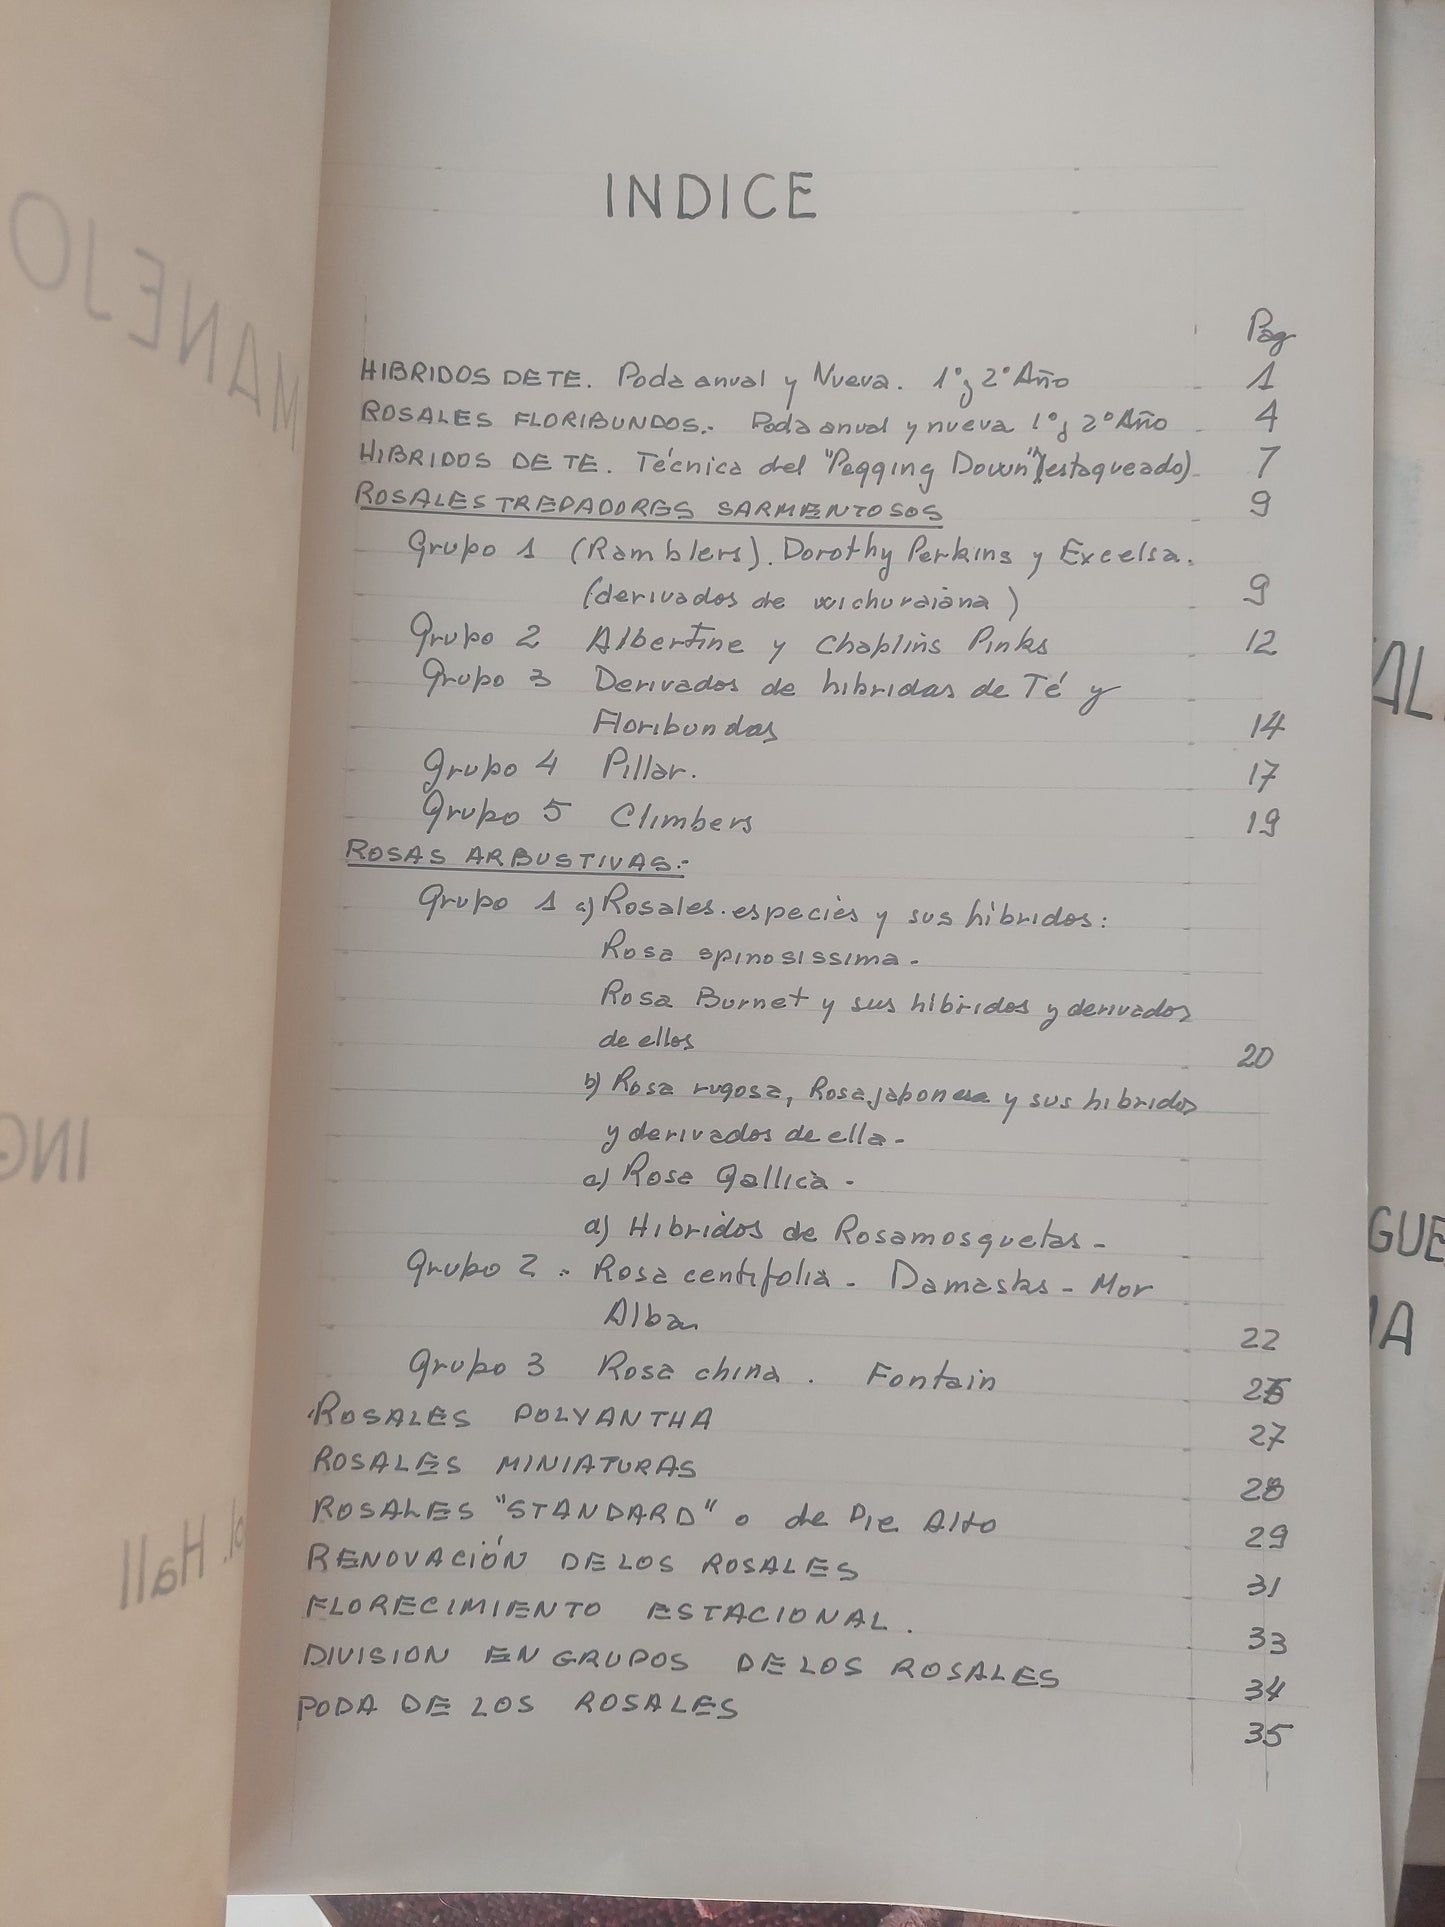 INDICE
Pag
HIBRIDOS DE TE. Poda anual y Nueva. 1° y 2° Año 1
ROSALES FLORIBUNDOS.- Poda anual y nueva 1° y 2° Año 4
HIBRIDOS DE TE. Técnica del "Pegging Down" (estaqueado) 7
ROSALES TREPADORES SARMENTOSOS 9
Grupo 1 (Ramblers). Dorothy Perkins y Excelsa.
(derivados de wichuraiana) 9
Grupo 2 Albertine y Chaplins Pinks 12
Grupo 3 Derivados de hibridas de Té y
Floribundas 14
Grupo 4 Pillar. 17
Grupo 5 Climbers 19
ROSAS ARBUSTIVAS:-
Grupo 1 a) Rosales.especies y sus hibridos:
Rosa spinosissima -
Rosa Burnet y sus hibridos y derivados
de ellos 20
b) Rosa rugosa, Rosa japonesa y sus hibridos
y derivados de ella -
c) Rosa Gallica -
d) Hibridos de Rosamosquetas -
Grupo 2 - Rosa centifolia - Damasks - Mor
Alban 22
Grupo 3 Rosa china . Fontain
ROSALES POLYANTHA 27
ROSALES MINIATURAS 28
ROSALES "STANDARD" o de Pie Alto 29
RENOVACIÓN DE LOS ROSALES 31
FLORECIMIENTO ESTACIONAL. 33
DIVISION EN GRUPOS DE LOS ROSALES 34
PODA DE LOS ROSALES 35
MANEJO
ING
Hall
AL
GUE